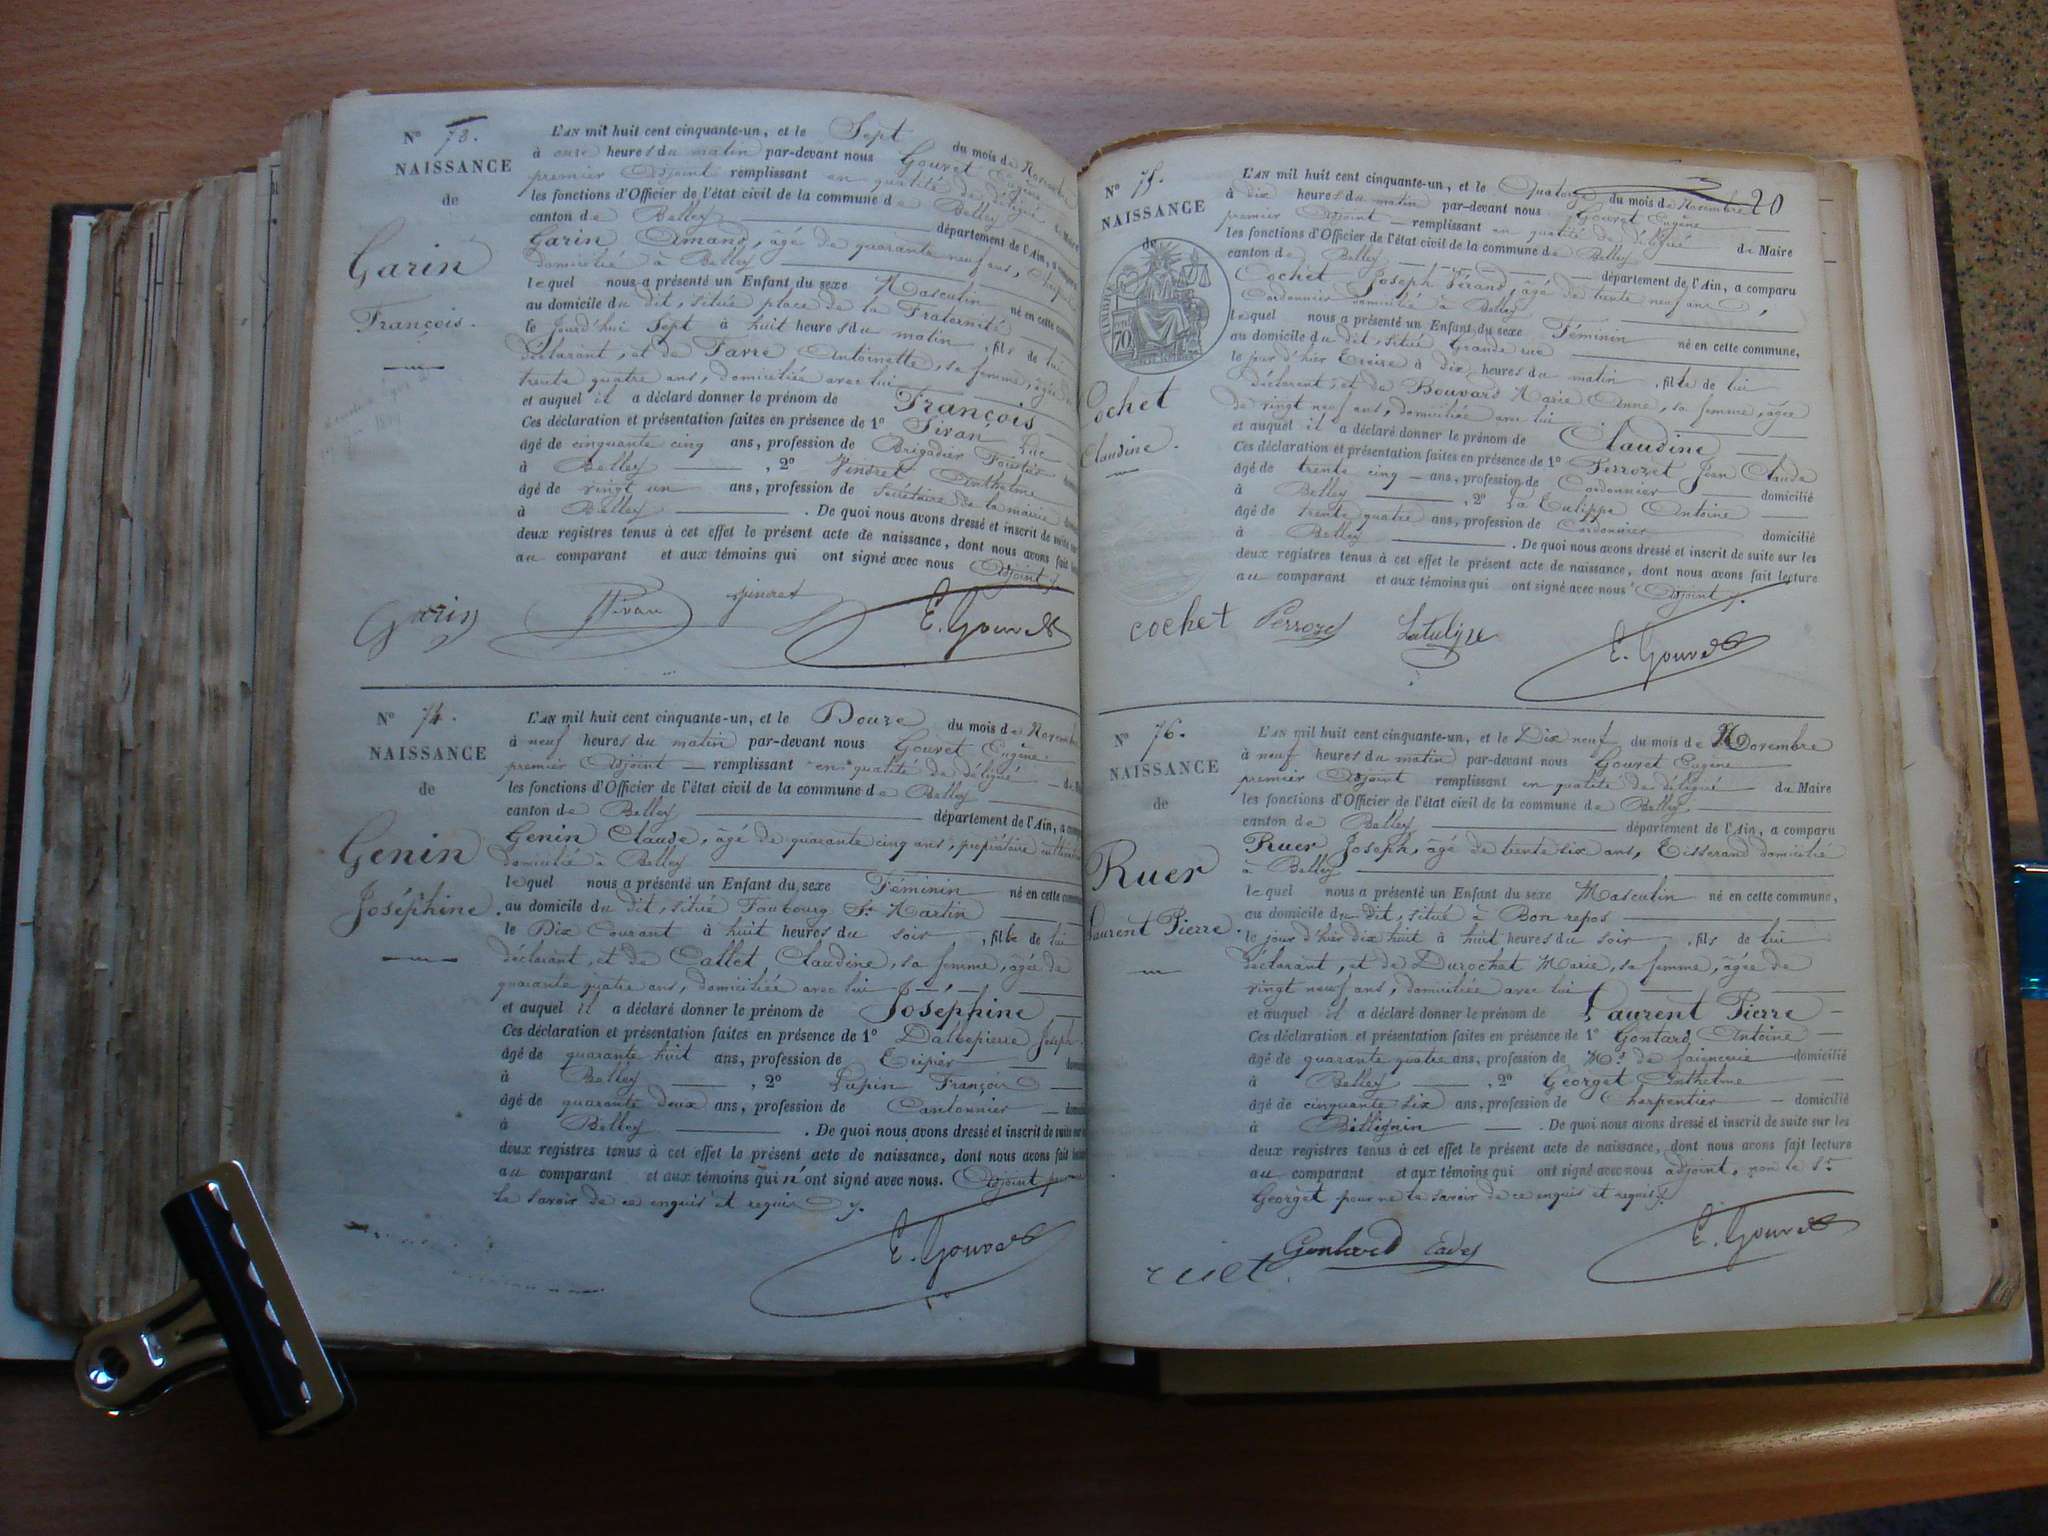 N° 73.
NAISSANCE
de
Garin
François.
L'AN mil huit cent cinquante-un, et le Sept du mois de Novembre
à onze heures du matin par-devant nous Gouvet Eugène
premier Adjoint remplissant en qualité de délégué de Maire
les fonctions d'Officier de l'état civil de la commune de Belley
canton de Belley département de l'Ain, a comparu
Garin Amand, âgé de quarante neuf ans,
domicilié à Belley
lequel nous a présenté un Enfant du sexe Masculin né en cette commune
au domicile du dit, située place de la Fraternité
le jourd'hui Sept à huit heures du matin, fils de lui
déclarant, et de Favre Antoinette, sa femme, âgée de
trente quatre ans, domiciliée avec lui
et auquel il a déclaré donner le prénom de François
Ces déclaration et présentation faites en présence de 1° Pivan Luc
âgé de cinquante cinq ans, profession de Brigadier Forestier
à Belley, 2° Vindret Anthelme
âgé de vingt un ans, profession de Secrétaire de la mairie
à Belley. De quoi nous avons dressé et inscrit de suite sur
deux registres tenus à cet effet le présent acte de naissance, dont nous avons fait
au comparant et aux témoins qui ont signé avec nous Adjoint
Garin Pivan Vindret E. Gouvet
N° 74.
NAISSANCE
de
Genin
Joséphine.
L'AN mil huit cent cinquante-un, et le Douze du mois de Novembre
à neuf heures du matin par-devant nous Gouvet Eugène
premier Adjoint remplissant en qualité de délégué
les fonctions d'Officier de l'état civil de la commune de Belley
canton de Belley département de l'Ain, a comparu
Genin Claude, âgé de quarante cinq ans, propriétaire cultivateur
domicilié à Belley
lequel nous a présenté un Enfant du sexe Féminin né en cette commune
au domicile du dit, située Faubourg St Martin
le Dix Courant à huit heures du soir, fille de lui
déclarant, et de Callet Claudine, sa femme, âgée de
quarante quatre ans, domiciliée avec lui
et auquel il a déclaré donner le prénom de Joséphine
Ces déclaration et présentation faites en présence de 1° Dallepierre Joseph
âgé de quarante huit ans, profession de Tripier
à Belley, 2° Lupin François
âgé de quarante deux ans, profession de Cantonnier
à Belley. De quoi nous avons dressé et inscrit de suite sur
deux registres tenus à cet effet le présent acte de naissance, dont nous avons fait
au comparant et aux témoins qui n'ont signé avec nous. Adjoint pour ne
le savoir de ce enquis et requis
E. Gouvet
20
N° 75.
NAISSANCE
de
TIMBRE
70
Cochet
Claudine.
L'AN mil huit cent cinquante-un, et le Quatorze du mois de Novembre
à dix heures du matin par-devant nous Gouvet Eugène
premier Adjoint remplissant en qualité de délégué de Maire
les fonctions d'Officier de l'état civil de la commune de Belley
canton de Belley département de l'Ain, a comparu
Cochet Joseph Férand, âgé de trente neuf ans,
Cordonnier domicilié à Belley
lequel nous a présenté un Enfant du sexe Féminin né en cette commune,
au domicile du dit, située Grande rue
le jour d'hier Treize à dix heures du matin, fille de lui
déclarant, et de Bouvard Marie Anne, sa femme, âgée
de vingt neuf ans, domiciliée avec lui
et auquel il a déclaré donner le prénom de Claudine
Ces déclaration et présentation faites en présence de 1° Perrozet Jean Claude
âgé de trente cinq ans, profession de Cordonnier domicilié
à Belley, 2° La Tulippe Antoine
âgé de trente quatre ans, profession de Cordonnier domicilié
à Belley. De quoi nous avons dressé et inscrit de suite sur les
deux registres tenus à cet effet le présent acte de naissance, dont nous avons fait lecture
au comparant et aux témoins qui ont signé avec nous Adjoint
cochet Perrozet Latulipe E. Gouvet
N° 76.
NAISSANCE
de
Ruer
Laurent Pierre.
L'AN mil huit cent cinquante-un, et le Dix neuf du mois de Novembre
à neuf heures du matin par-devant nous Gouvet Eugène
premier Adjoint remplissant en qualité de délégué du Maire
les fonctions d'Officier de l'état civil de la commune de Belley
canton de Belley département de l'Ain, a comparu
Ruer Joseph, âgé de trente six ans, Tisserand domicilié
à Belley
lequel nous a présenté un Enfant du sexe Masculin né en cette commune,
au domicile du dit, situé à Bon repos
le jour d'hier dix huit à huit heures du soir, fils de lui
déclarant, et de Durochat Marie, sa femme, âgée de
vingt neuf ans, domiciliée avec lui
et auquel il a déclaré donner le prénom de Laurent Pierre
Ces déclaration et présentation faites en présence de 1° Gontard Antoine
âgé de quarante quatre ans, profession de Md de faiencerie domicilié
à Belley, 2° Georget Anthelme
âgé de cinquante six ans, profession de Charpentier domicilié
à Billignin. De quoi nous avons dressé et inscrit de suite sur les
deux registres tenus à cet effet le présent acte de naissance, dont nous avons fait lecture
au comparant et aux témoins qui ont signé avec nous adjoint, non le Sr
Georget pour ne le savoir de ce enquis et requis
ruet Gontard E. Gouvet